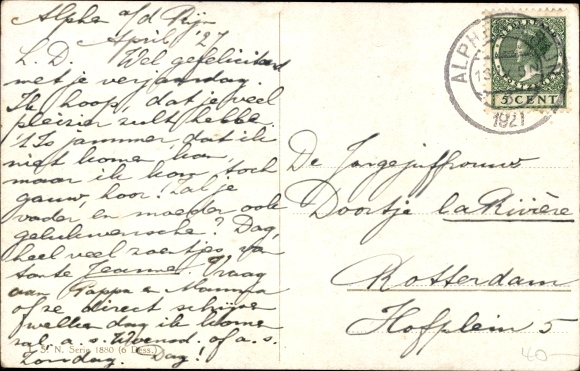 Alpha a/d Rijn
April '27
L. D. Wel gefeliciteerd
met je verjaardag
Ik hoop, dat je veel
pleizier zult hebbe.
't Is jammer, dat ik
niet kome kan,
maar ik kom toch
gauw, hoor! Zal je
vader en moeder ook
gelukwensche? Dag,
heel veel zoentjes van
tante Jeanne. Vraag
aan Pappa en Mamma
of ze direct schrijve
welke dag ik kome
zal, a.s. Woensd. of a.s.
Zondag. Dag!
S. N. Serie 1880 (6 Dess.)
ALPHEN
1927
5 CENT
De Jongejuffrouw
Doortje la Rivière
Rotterdam
Hofplein 5
40-